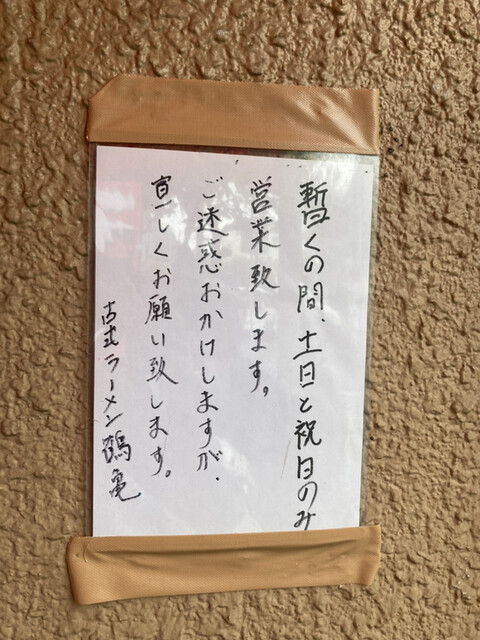 暫くの間、土日と祝日のみ
営業致します。
ご迷惑おかけしますが、
宜しくお願い致します。
古式ラーメン鶴亀